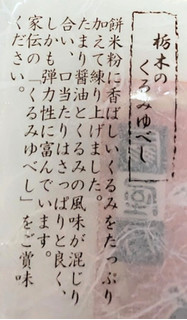 栃木の
くるみゆべし
餅米粉に香ばしいくるみをたっぷり
加えて練り上げました。
たまり醤油とくるみの風味が混じり
合い、口当たりはさっぱりと良く、
しかも弾力性に富んでいます。
家伝の「くるみゆべし」をご賞味
ください。